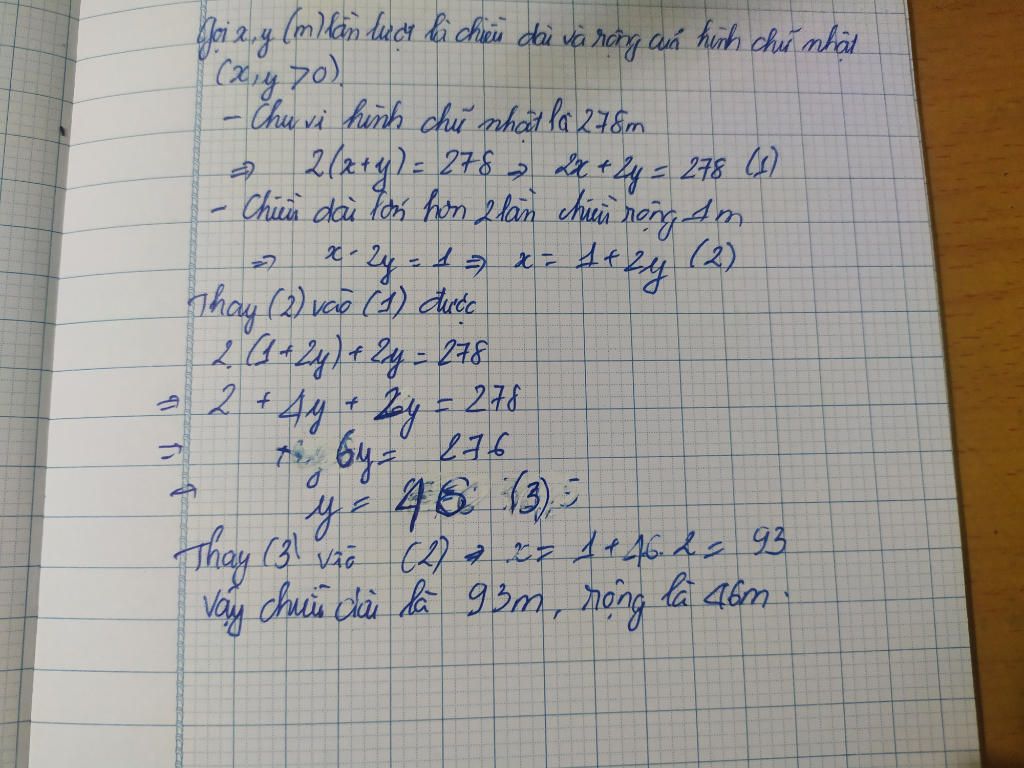 Gọi x, y (m) lần lượt là chiều dài và rộng của hình chữ nhật
(x, y > 0).
- Chu vi hình chữ nhật là 278m
=> 2(x+y) = 278 => 2x + 2y = 278 (1)
- Chiều dài lớn hơn 2 lần chiều rộng 1m
=> x - 2y = 1 => x = 1 + 2y (2)
Thay (2) vào (1) được
2.(1+2y) + 2y = 278
=> 2 + 4y + 2y = 278
=> 6y = 276
=> y = 46 (3)
Thay (3) vào (2) => x = 1 + 46.2 = 93
Vậy chiều dài là 93m, rộng là 46m.